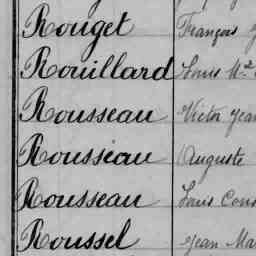 Rouget François
Rouillard Louis M.
Rousseau Victor Jean
Rousseau Auguste
Rousseau Louis Cons
Roussel Jean Ma